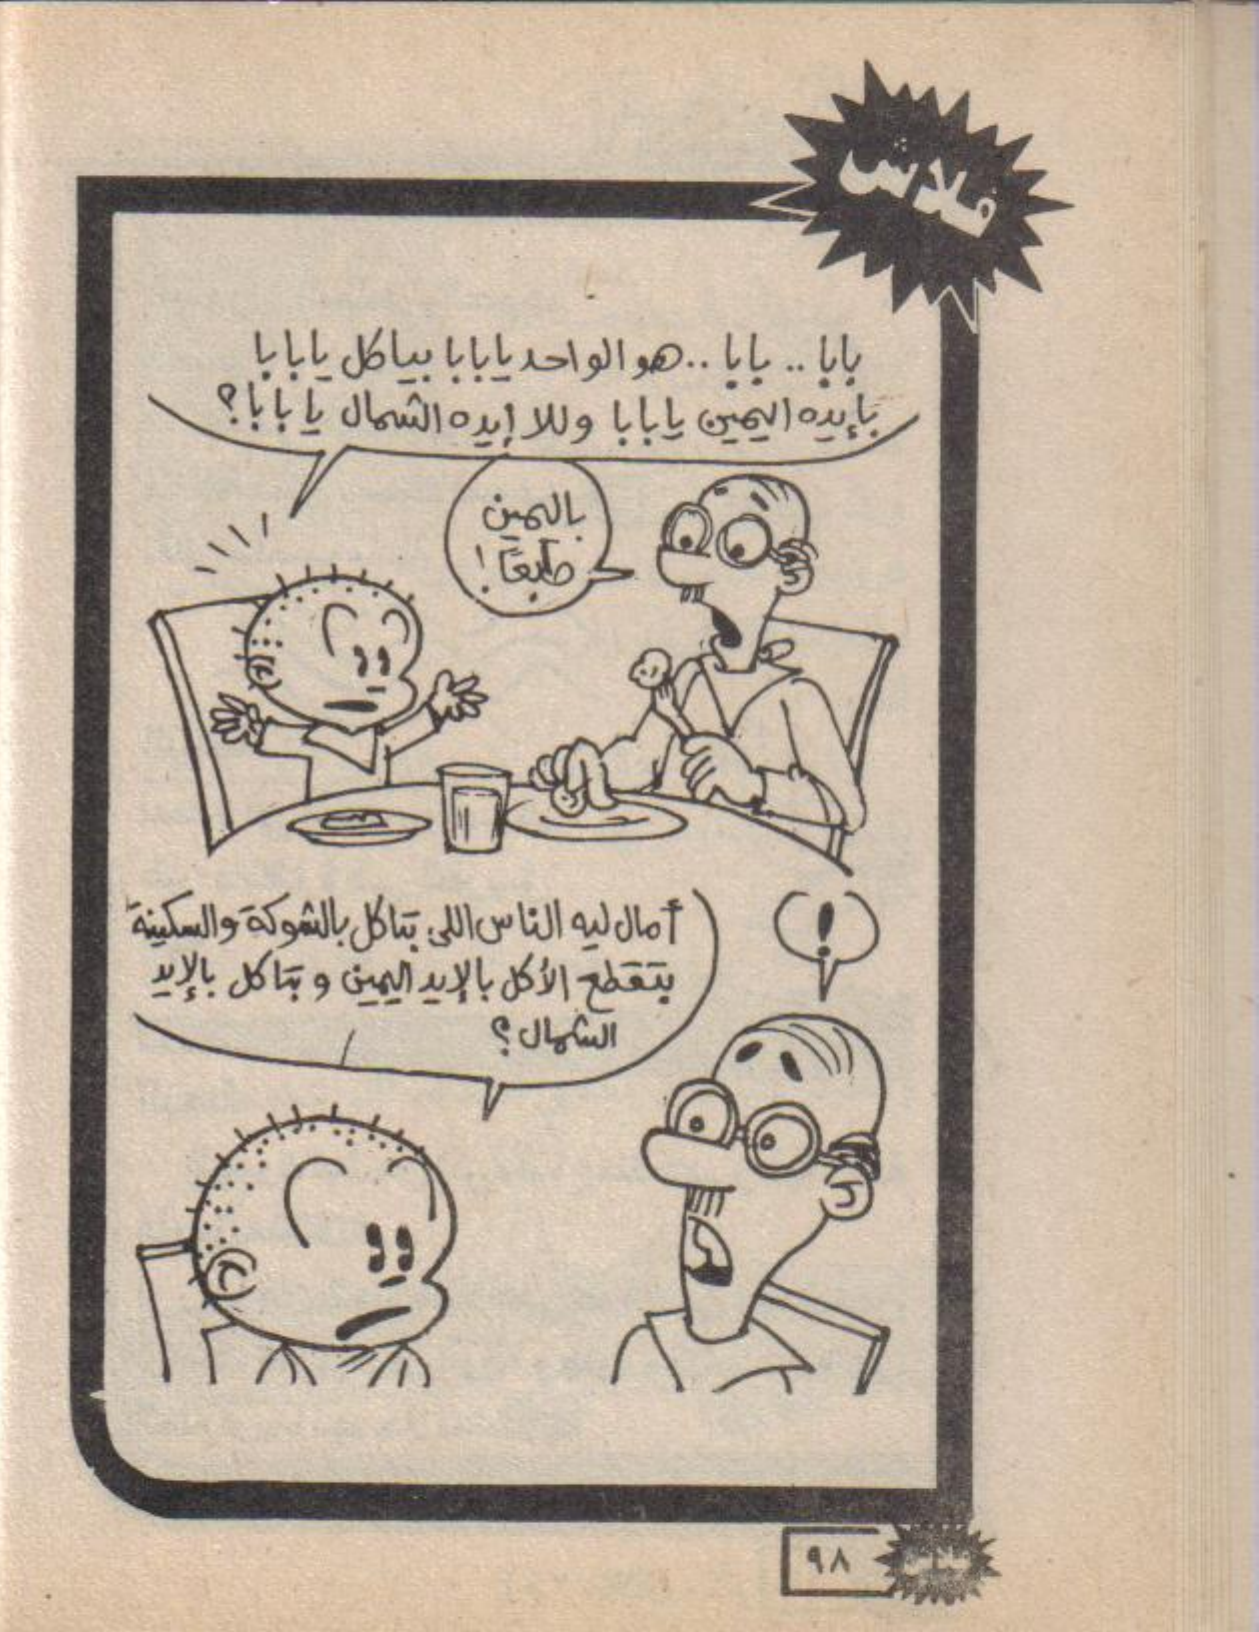 فلاش
بابا .. بابا .. هو الواحد يابابا بياكل يابابا
بإيده اليمين يابابا وللا إيده الشمال يابابا؟
باليمين
طبعًا!
!
أمال ليه الناس اللى بتاكل بالشوكة والسكينة
بتقطع الأكل بالإيد اليمين و بتاكل بالإيد
الشمال؟
٩٨
فلاش